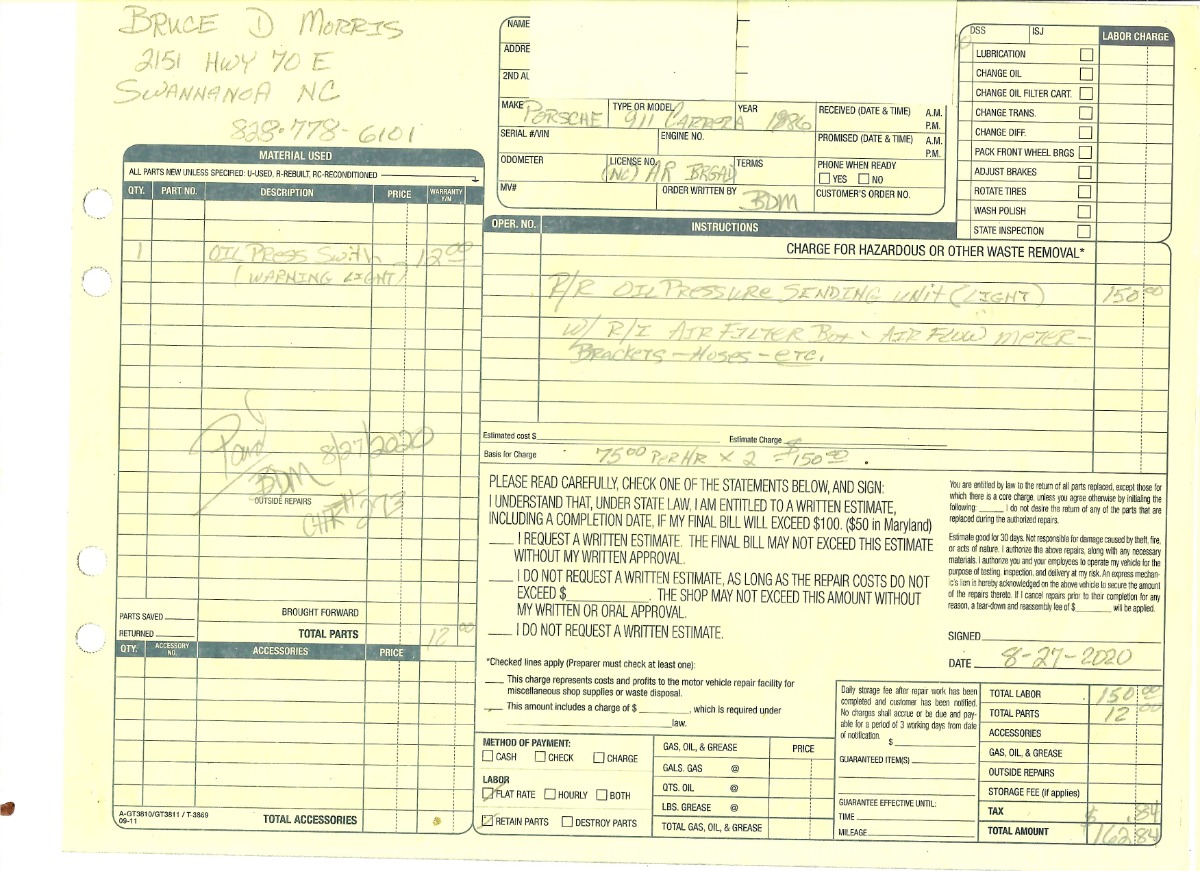 BRUCE D MORRIS
2151 HWY 70 E
SWANNANOA NC
828-778-6101
NAME
ADDRE
2ND AL
MAKE PORSCHE TYPE OR MODEL 911 CARRERA YEAR 1986 RECEIVED (DATE & TIME) A.M. P.M.
SERIAL #/VIN ENGINE NO. PROMISED (DATE & TIME) A.M. P.M.
ODOMETER LICENSE NO. (NC) AR BRGAD TERMS PHONE WHEN READY
YES NO
MV# ORDER WRITTEN BY BDM CUSTOMER'S ORDER NO.
DSS ISJ LABOR CHARGE
LUBRICATION
CHANGE OIL
CHANGE OIL FILTER CART.
CHANGE TRANS.
CHANGE DIFF.
PACK FRONT WHEEL BRGS
ADJUST BRAKES
ROTATE TIRES
WASH POLISH
STATE INSPECTION
MATERIAL USED
ALL PARTS NEW UNLESS SPECIFIED: U-USED, R-REBUILT, RC-RECONDITIONED
QTY. PART NO. DESCRIPTION PRICE WARRANTY Y/N
1 OIL PRESS Swith 12 00
(WARNING LIGHT)
Paid 8/27/2020
BDM
OUTSIDE REPAIRS
CHK# 273
PARTS SAVED
BROUGHT FORWARD
RETURNED
TOTAL PARTS 12 00
QTY. ACCESSORY NO. ACCESSORIES PRICE
A-GT3810/GT3811 / T-3869
09-11
TOTAL ACCESSORIES
OPER. NO. INSTRUCTIONS
CHARGE FOR HAZARDOUS OR OTHER WASTE REMOVAL*
R/R OIL PRESSURE SENDING UNIT (LIGHT) 150 00
W/ R/I AIR FILTER BOX - AIR FLOW METER -
BRACKETS - HOSES - ETC.
Estimated cost $ Estimate Charge $
Basis for Charge 75 00 PER HR X 2 = $150 00 .
PLEASE READ CAREFULLY, CHECK ONE OF THE STATEMENTS BELOW, AND SIGN:
I UNDERSTAND THAT, UNDER STATE LAW, I AM ENTITLED TO A WRITTEN ESTIMATE,
INCLUDING A COMPLETION DATE, IF MY FINAL BILL WILL EXCEED $100. ($50 in Maryland)
I REQUEST A WRITTEN ESTIMATE. THE FINAL BILL MAY NOT EXCEED THIS ESTIMATE
WITHOUT MY WRITTEN APPROVAL.
I DO NOT REQUEST A WRITTEN ESTIMATE, AS LONG AS THE REPAIR COSTS DO NOT
EXCEED $ . THE SHOP MAY NOT EXCEED THIS AMOUNT WITHOUT
MY WRITTEN OR ORAL APPROVAL.
I DO NOT REQUEST A WRITTEN ESTIMATE.
*Checked lines apply (Preparer must check at least one):
This charge represents costs and profits to the motor vehicle repair facility for
miscellaneous shop supplies or waste disposal.
This amount includes a charge of $ , which is required under
law.
You are entitled by law to the return of all parts replaced, except those for
which there is a core charge, unless you agree otherwise by initialing the
following: I do not desire the return of any of the parts that are
replaced during the authorized repairs.
Estimate good for 30 days. Not responsible for damage caused by theft, fire,
or acts of nature. I authorize the above repairs, along with any necessary
materials. I authorize you and your employees to operate my vehicle for the
purpose of testing, inspection, and delivery at my risk. An express mechan-
ic's lien is hereby acknowledged on the above vehicle to secure the amount
of the repairs thereto. If I cancel repairs prior to their completion for any
reason, a tear-down and reassembly fee of $ will be applied.
SIGNED
DATE 8-27-2020
METHOD OF PAYMENT:
CASH CHECK CHARGE
LABOR
FLAT RATE HOURLY BOTH
RETAIN PARTS DESTROY PARTS
GAS, OIL, & GREASE PRICE
GALS. GAS @
QTS. OIL @
LBS. GREASE @
TOTAL GAS, OIL, & GREASE
Daily storage fee after repair work has been
completed and customer has been notified.
No charges shall accrue or be due and pay-
able for a period of 3 working days from date
of notification. $
GUARANTEED ITEM(S)
GUARANTEE EFFECTIVE UNTIL:
TIME
MILEAGE
TOTAL LABOR 150 00
TOTAL PARTS 12 00
ACCESSORIES
GAS, OIL, & GREASE
OUTSIDE REPAIRS
STORAGE FEE (if applies)
TAX $ .84
TOTAL AMOUNT 162 84